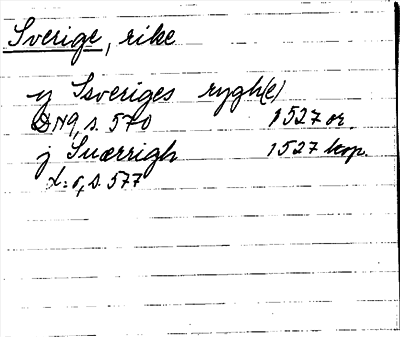 Sverige, rike
y Ssveriges rygh(e)
DN9, s. 570 1527 or.
j Suærrigh 1527 kop.
d:o, s. 577